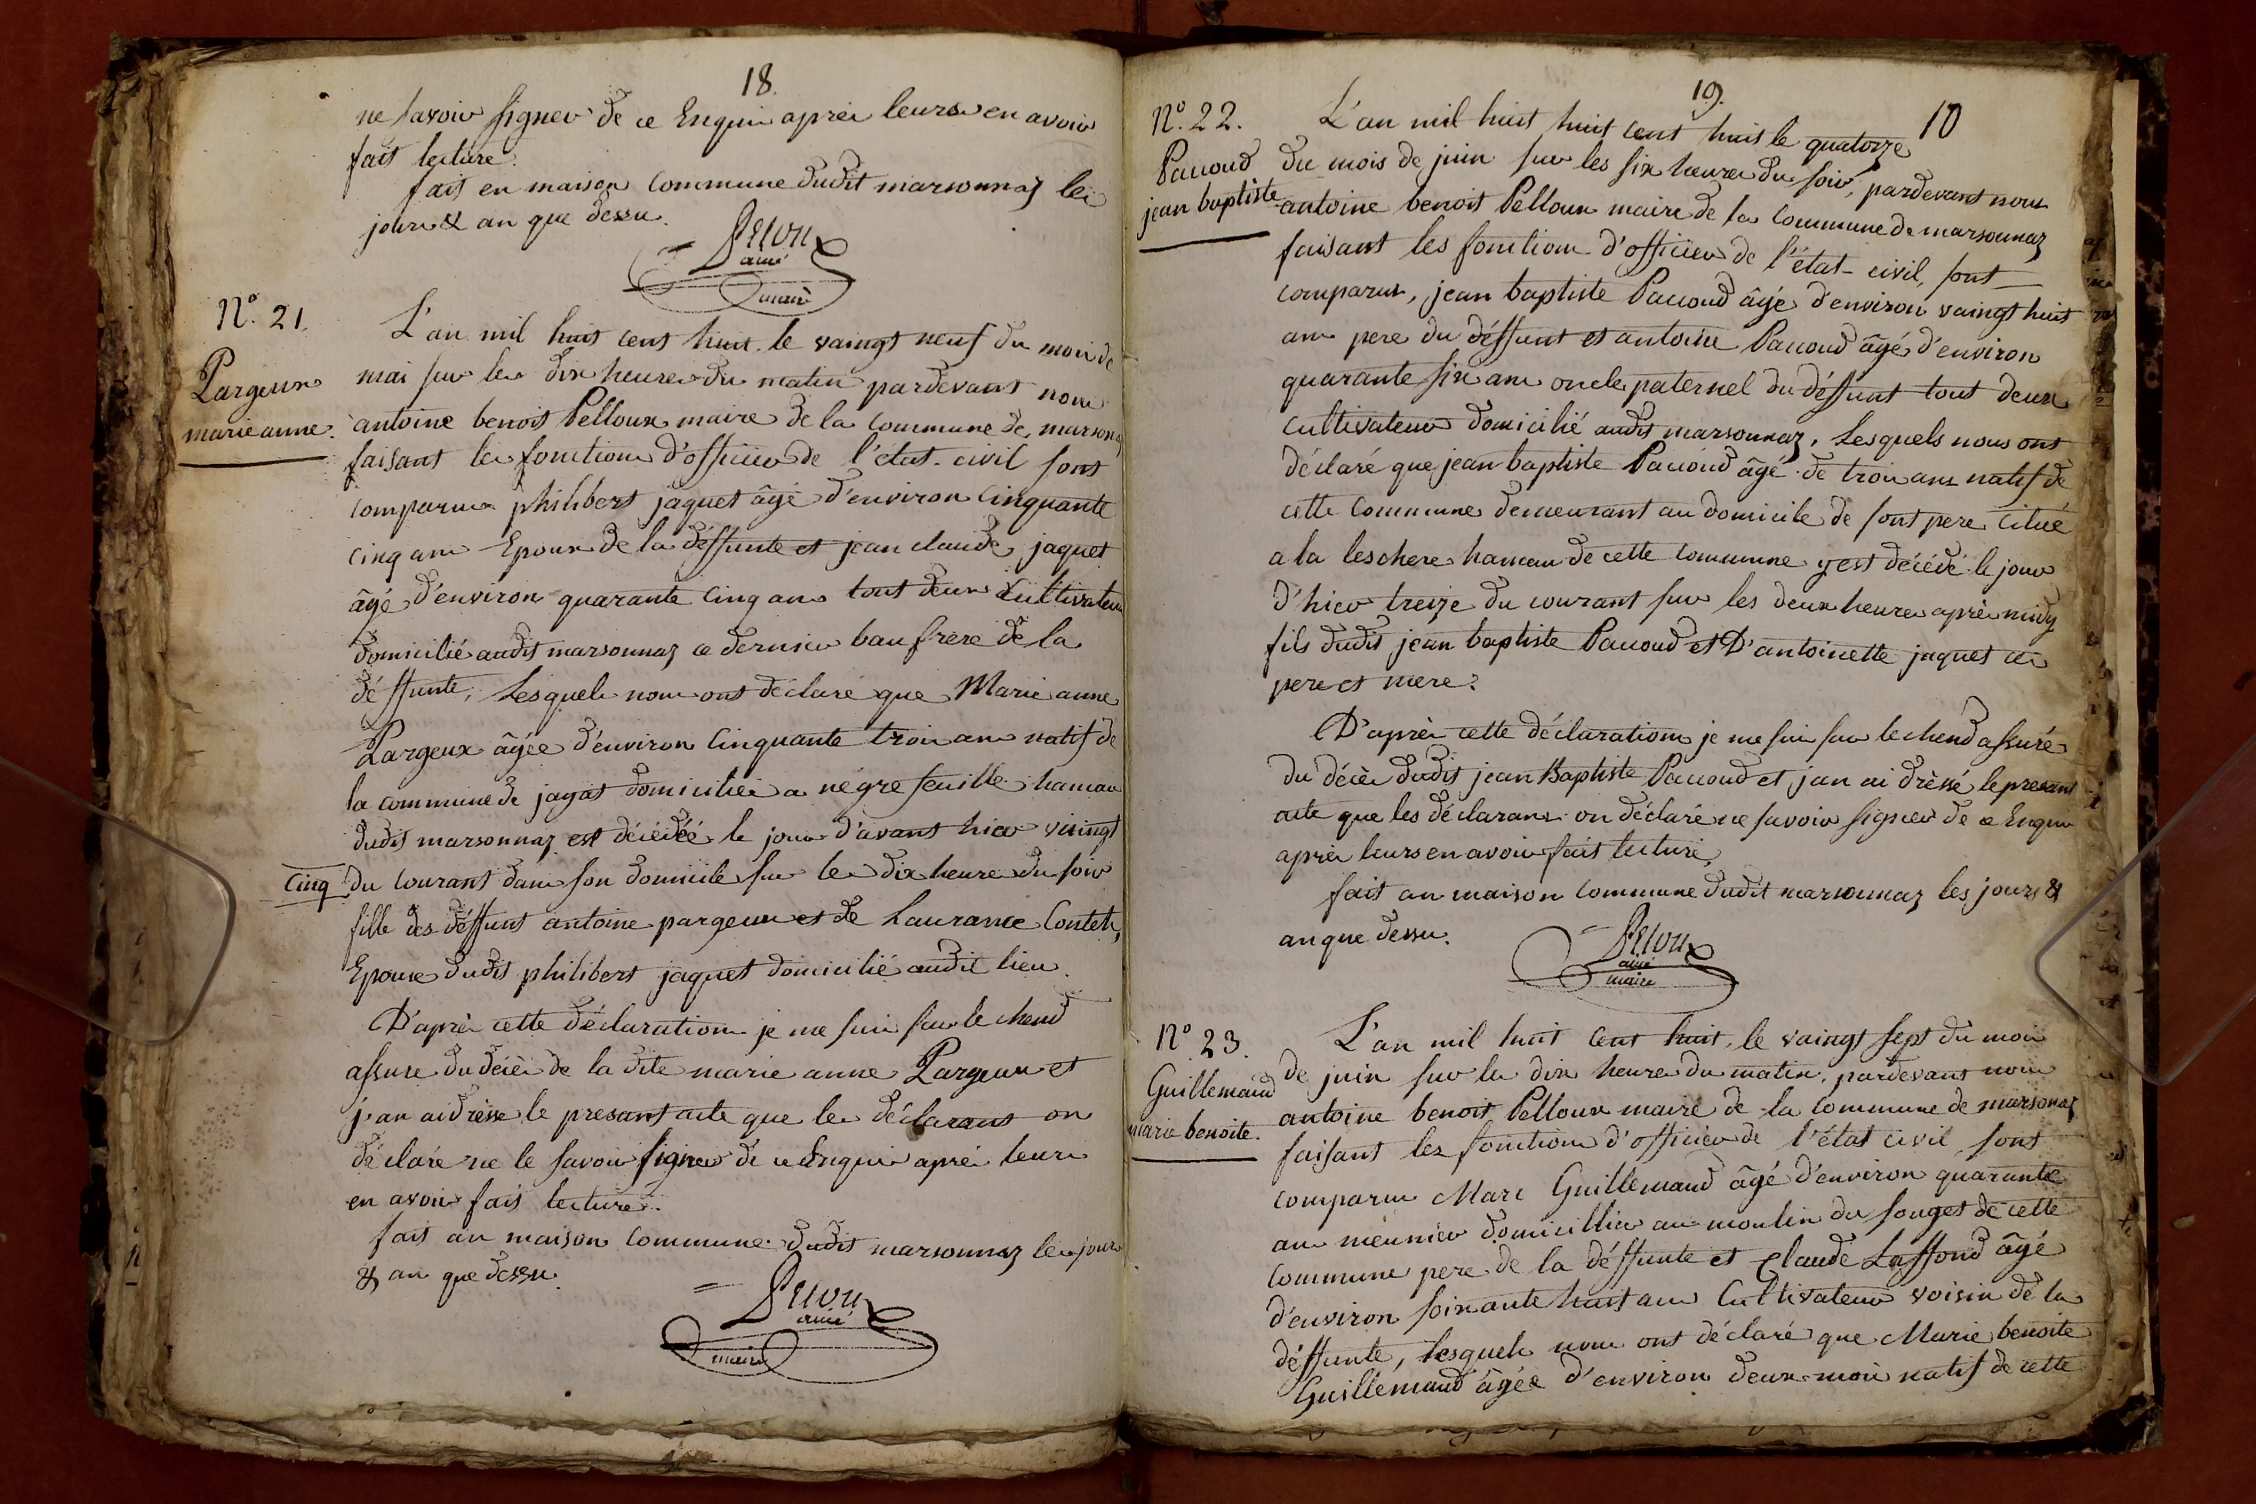 18.
ne savoir signer de ce Enquis aprés leurs en avoir
fait lecture.
fait en maison commune dudit marsonnaz les
jours & an que dessu.
Pelloux
ainé
maire
N.º 21.
Pargeux
marie anne.
L'an mil huit cent huit le vaingt neuf du mois de
mai sur les dix heures du matin pardevant nous
antoine benoit Pelloux maire de la commune de marsonaz
faisant les fonctions d'officier de l'état civil sont
comparus philibert jaquet âgé d'environ cinquante
cinq ans Epoux de la déffunte et jean claude jaquet
âgé d'environ quarante cinq ans tout deux Cultivateurs
domicilié audit marsonnaz ce dernier baufrere de la
déffunte, Lesquels nous ont déclaré que Marie anne
Pargeux âgée d'environ Cinquante trois ans natif de
la commune de jayat domiciliée a négrefeuille hameau
dudit marsonnaz est décédéé le jour d'avant hier vaingt
cinq
du courant dans son domicile sur les dix heure du soir
fille des déffunt antoine pargeux et de Laurance Conteh,
Epouse dudit philibert jaquet domicilié audit lieu.
D'aprés cette déclaration je me suis sur le chend
assure du décès de la dite marie anne Pargeux et
j'an ai drésse le presant acte que les déclarans on
déclaré ne le savoir signer de ce Enquis aprés leurs
en avoir fais lecture.
fait an maison commune dudit marsonnaz les jours
& an que dessu.
Pelloux
ainé
maire
19.
10
N.º 22.
Pauoud
jean baptiste
L'an mil huit huit cent huit le quatorze
du mois de juin sur les six heures du soir, pardevant nous
antoine benoit Pelloux maire de la commune de marsonnaz
faisant les fonctions d'officier de l'état-civil, sont
comparus, jean baptiste Pauoud âgé d'environ vaingt huit
ans pere du déffunt et antoine Pauoud âgé d'environ
quarante six ans oncle paternel du déffunt tout deux
cultivateurs domicilié audit marsonnaz, Lesquels nous ont
déclaré que jean baptiste Pauoud âgé de trois ans natif de
cette commune demeurant au domicile de sont pere citué
a la leschere hameau de cette commune y est décédé le jour
d'hier treize du courant sur les deux heures aprés midy
fils dudit jean baptiste Pauoud et D'antoinette jaquet ces
pere et mere.
D'aprés cette déclaration je me suis sur le chend assuré
du décès dudit jean Baptiste Pauoud et j'an ai drèssé le presant
acte que les déclarans on déclaré ne savoir signer de ce Enquis
aprés leurs en avoir fait lecture.
fait an maison commune dudit marsonnaz les jours &
an que dessu.
Pelloux
ainé
maire
Nº 23.
Guillemaud
marie benoite.
L'an mil huit cent huit, le vaingt sept du mois
de juin sur les dix heures du matin, pardevant nous
antoine benoit Pelloux maire de la commune de marsonaz
faisant les fonctions d'officier de l'état civil sont
comparus Marc Guillemaud âgé d'environ quarante
ans meunier domicillier au moulin du souget de cette
commune pere de la déffunte et Claude Laffond âgé
d'environ soixante huit ans Cultivateur voisin de la
déffunte, lesquels nous ont déclaré que Marie benoite
Guillemaud âgée d'environ deux mois natif de cette